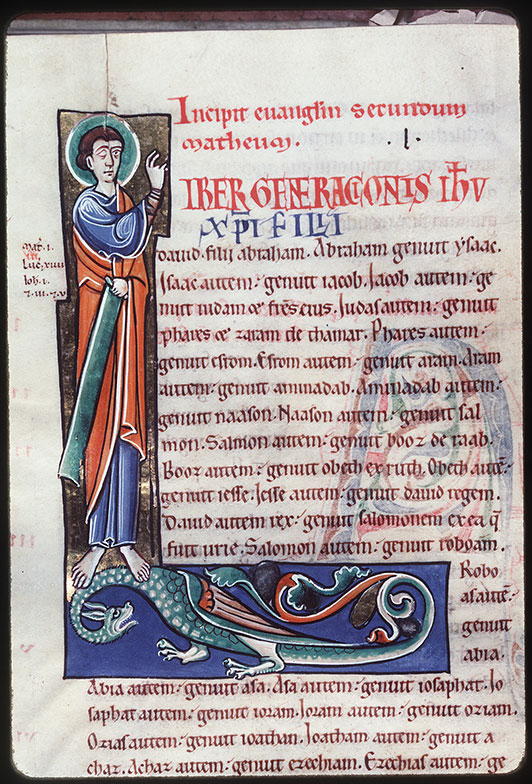 Incipit euangliu secundum
matheum. .I.
IBER GENERACIONIS IHV
XPI FILII
dauid. filii abraham. Abraham genuit ysaac.
Isaac autem: genuit iacob. Iacob autem: ge
nuit iudam & fres eius. Iudas autem: genuit
phares & zaram de thamar. Phares autem:
genuit esrom. Esrom autem: genuit aram. Aram
autem: genuit aminadab. Aminadab autem:
genuit naason. Naason autem: genuit sal
mon. Salmon autem: genuit booz de raab.
Booz autem: genuit obeth ex ruth. Obeth aute:
genuit iesse. Iesse autem: genuit dauid regem.
Dauid autem rex: genuit salomonem ex ea q
fuit urie. Salomon autem: genuit roboam.
Robo
as aute:
genuit
abia.
Abia autem: genuit asa. Asa autem: genuit iosaphat. Io
saphat autem: genuit ioram. Ioram autem: genuit oziam.
Ozias autem: genuit ioathan. Ioatham autem: genuit a
chaz. Achaz autem: genuit ezechiam. Ezechias autem: ge
Mat. i.
Luc. xiiii
Ioh. i.